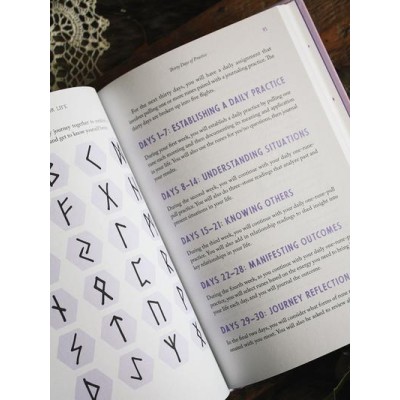 R LIFE
journey together to
and get to know yourself
Thirty Days of Practice
For the next thirty days, you will have a daily assignment that
random pulling one or more runes paired with a journaling practice. The
thirty days are broken up into five flights.
DAYS 1–7: ESTABLISHING A DAILY PRACTICE
During your first week, you will establish a daily practice by pulling one
rune each morning and then documenting its meaning and application
in your life. You will also use the runes for yes/no questions, then journal
your results.
DAYS 8–14: UNDERSTANDING SITUATIONS
During the second week, you will continue with your daily one-rune-
pull practice. You will also do three-rune readings that analyze past and
present situations in your life.
DAYS 15–21: KNOWING OTHERS
During the third week, you will continue with your daily one-rune-pull
practice. You will also add in relationship readings to shed insight into
your relationships in your life.
DAYS 22–28: MANIFESTING OUTCOMES
During the fourth week, as you continue with your daily one-rune-pull
practice, you will select runes based on the energy you need to bring
into your life each day, and you will journal the outcome.
DAYS 29–30: JOURNEY REFLECTION
In the final two days, you will consider what forms of rune
resound with you most. You will also be asked to review